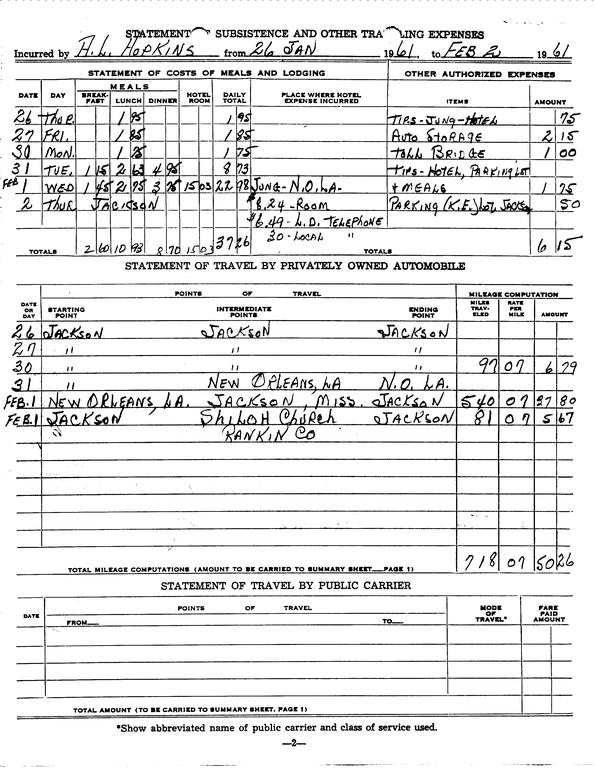 STATEMENT SUBSISTENCE AND OTHER TRA LING EXPENSES
Incurred by H.L. HOPKINS from 26 JAN 1961, to FEB 2 1961
STATEMENT OF COSTS OF MEALS AND LODGING OTHER AUTHORIZED EXPENSES
DATE DAY MEALS BREAK-FAST LUNCH DINNER HOTEL ROOM DAILY TOTAL PLACE WHERE HOTEL EXPENSE INCURRED ITEMS AMOUNT
26 THUR. 1 95 1 95 TIPS-JUNG-HOTEL 75
27 FRI. 1 85 1 85 AUTO STORAGE 2 15
30 MON. 1 75 1 75 TOLL BRIDGE 1 00
31 TUE, 1 15 2 63 4 95 8 73 TIPS-HOTEL, PARKING LOT
FEB 1 WED 1 45 2 75 3 75 15 03 22 98 JUNG-N.O.LA- + MEALS 1 75
2 THUR JACKSON $8.24-ROOM PARKING (K.E.) LOT, 50
$6.49-L.D. TELEPHONE
30-LOCAL "
TOTALS 2 60 10 93 8 70 15 03 37 26 TOTALS 6 15
STATEMENT OF TRAVEL BY PRIVATELY OWNED AUTOMOBILE
DATE OR DAY POINTS OF TRAVEL STARTING POINT INTERMEDIATE POINTS ENDING POINT MILEAGE COMPUTATION MILES TRAV-ELED RATE PER MILE AMOUNT
26 JACKSON JACKSON JACKSON
27 " " "
30 " " " 97 07 6 79
31 " NEW ORLEANS, LA N.O. LA.
FEB. 1 NEW ORLEANS, LA. JACKSON, MISS. JACKSON 540 07 37 80
FEB. 1 JACKSON SHILOH CHURCH JACKSON 81 07 5 67
" RANKIN CO
TOTAL MILEAGE COMPUTATIONS (AMOUNT TO BE CARRIED TO SUMMARY SHEET PAGE 1) 718 07 50 26
STATEMENT OF TRAVEL BY PUBLIC CARRIER
DATE POINTS OF TRAVEL FROM TO MODE OF TRAVEL* FARE PAID AMOUNT
TOTAL AMOUNT (TO BE CARRIED TO SUMMARY SHEET, PAGE 1)
*Show abbreviated name of public carrier and class of service used.
—2—